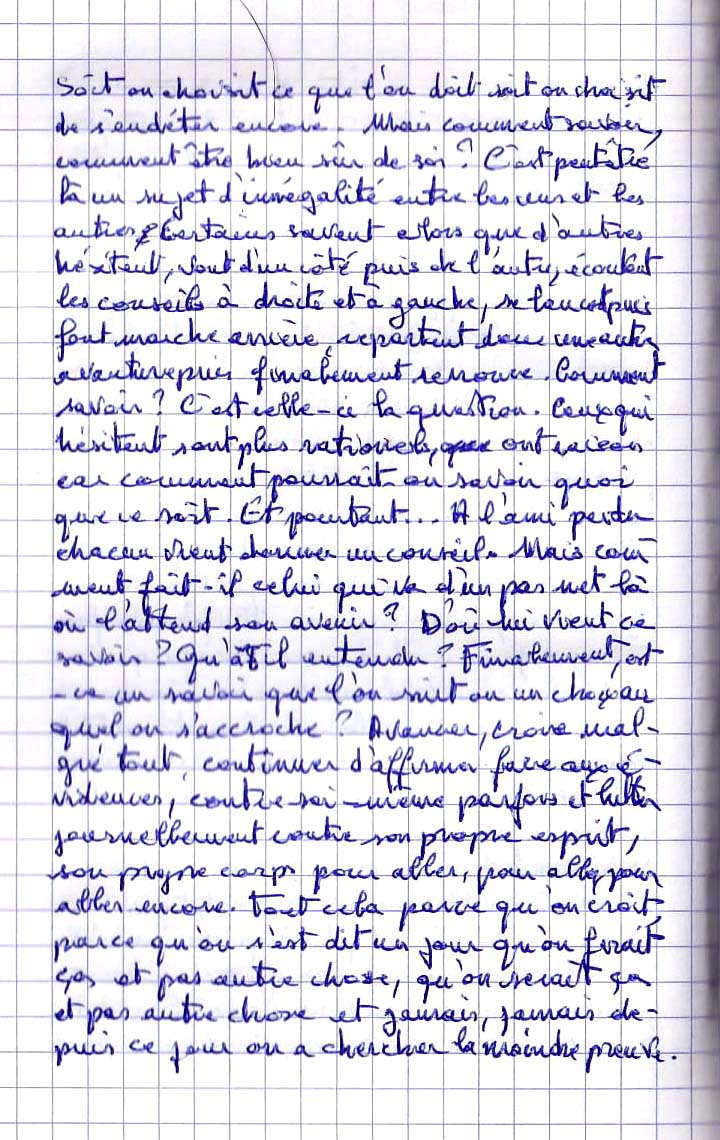 Soit on choisit ce que l'on doit soit on choisit
de s'endéter encore. Mais comment savoir,
comment être bien sûr de soi ? C'est peut être
là un sujet d'innégalité entre les uns et les
autres. Certains savent alors que d'autres
hésitent, vont d'un côté puis de l'autre, écoutent
les conseils à droite et à gauche, se lancent puis
font marche arrière, repartent dans une autre
avanture puis finalement renonce. Comment
savoir ? C'est celle-ci la question. Ceux qui
hésitent sont plus rationels, ont raison
car comment pourrait-on savoir quoi
que ce soit. Et pourtant... A l'ami perdu
chacun vient donner un conseil. Mais com-
ment fait-il celui qui va d'un pas net là
où l'attend son avenir ? D'où lui vient ce
savoir ? Qu'a-t-il entendu ? Finalement, est
-ce un savoir que l'on suit ou un choix au
quel on s'accroche ? Avancer, croire mal-
gré tout, continuer d'affirmer face aux é-
vidences, contre soi-même parfois et lutter
journellement contre son propre esprit,
son propre corps pour aller, pour aller, pour
aller encore. Tout cela parce qu'on croit,
parce qu'on s'est dit un jour qu'on ferait
ça et pas autre chose, qu'on serait ça
et pas autre chose et jamais, jamais de-
puis ce jour on a chercher la moindre preuve.